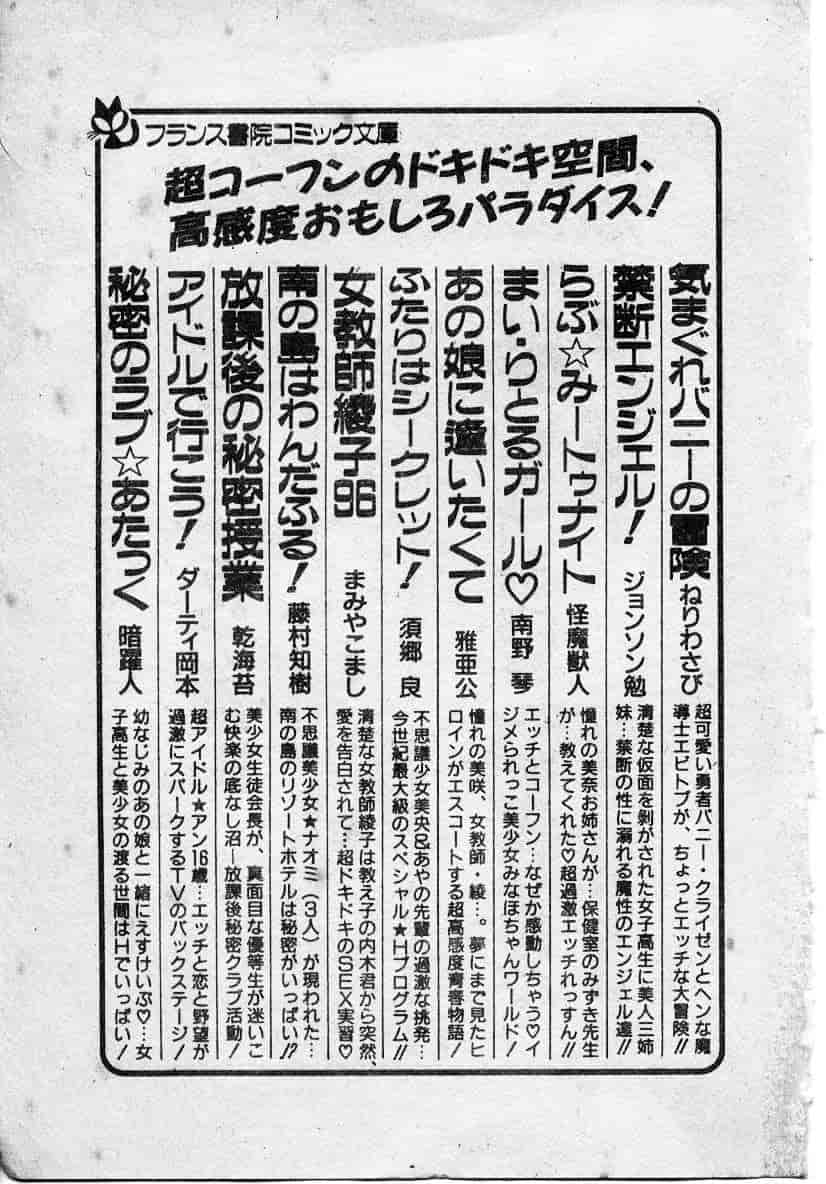 フランス書院コミック文庫
超コーフンのドキドキ空間、
高感度おもしろパラダイス!
気まぐれバニーの冒険 ねりわさび
超可愛い勇者バニー・クライゼンとヘンな魔
導士エビトブが、ちょっとエッチな大冒険!!
禁断エンジェル! ジョンソン勉
清楚な仮面を剝がされた女子高生に美人三姉
妹…禁断の性に溺れる魔性のエンジェル達!!
らぶ☆みートゥナイト 怪魔獣人
憧れの美奈お姉さんが…保健室のみずき先生
が…教えてくれた♡超過激エッチれっすん!!
まい・りとるガール♡ 南野 琴
エッチとコーフン…なぜか感動しちゃう♡イ
ジメられっこ美少女みなほちゃんワールド!
あの娘に逢いたくて 雅亜公
憧れの美咲、女教師・綾…。夢にまで見たヒ
ロインがエスコートする超高感度青春物語!
ふたりはシークレット! 須郷 良
不思議少女美央&あやの先輩の過激な挑発…
今世紀最大級のスペシャル★Hプログラム!!
女教師綾子96 まみやこまし
清楚な女教師綾子は教え子の内木君から突然、
愛を告白されて…超ドキドキのSEX実習♡
南の島はわんだふる! 藤村知樹
不思議美少女★ナオミ(3人)が現われた…
南の島のリゾートホテルは秘密がいっぱい!?
放課後の秘密授業 乾海苔
美少女生徒会長が、真面目な優等生が迷いこ
む快楽の底なし沼―放課後秘密クラブ活動!
アイドルで行こう! ダーティ岡本
超アイドル★アン16歳…エッチと恋と野望が
過激にスパークするTVのバックステージ!
秘密のラブ☆あたっく 暗躍人
幼なじみのあの娘と一緒にえすけいぷ♡…女
子高生と美少女の渡る世間はHでいっぱい!